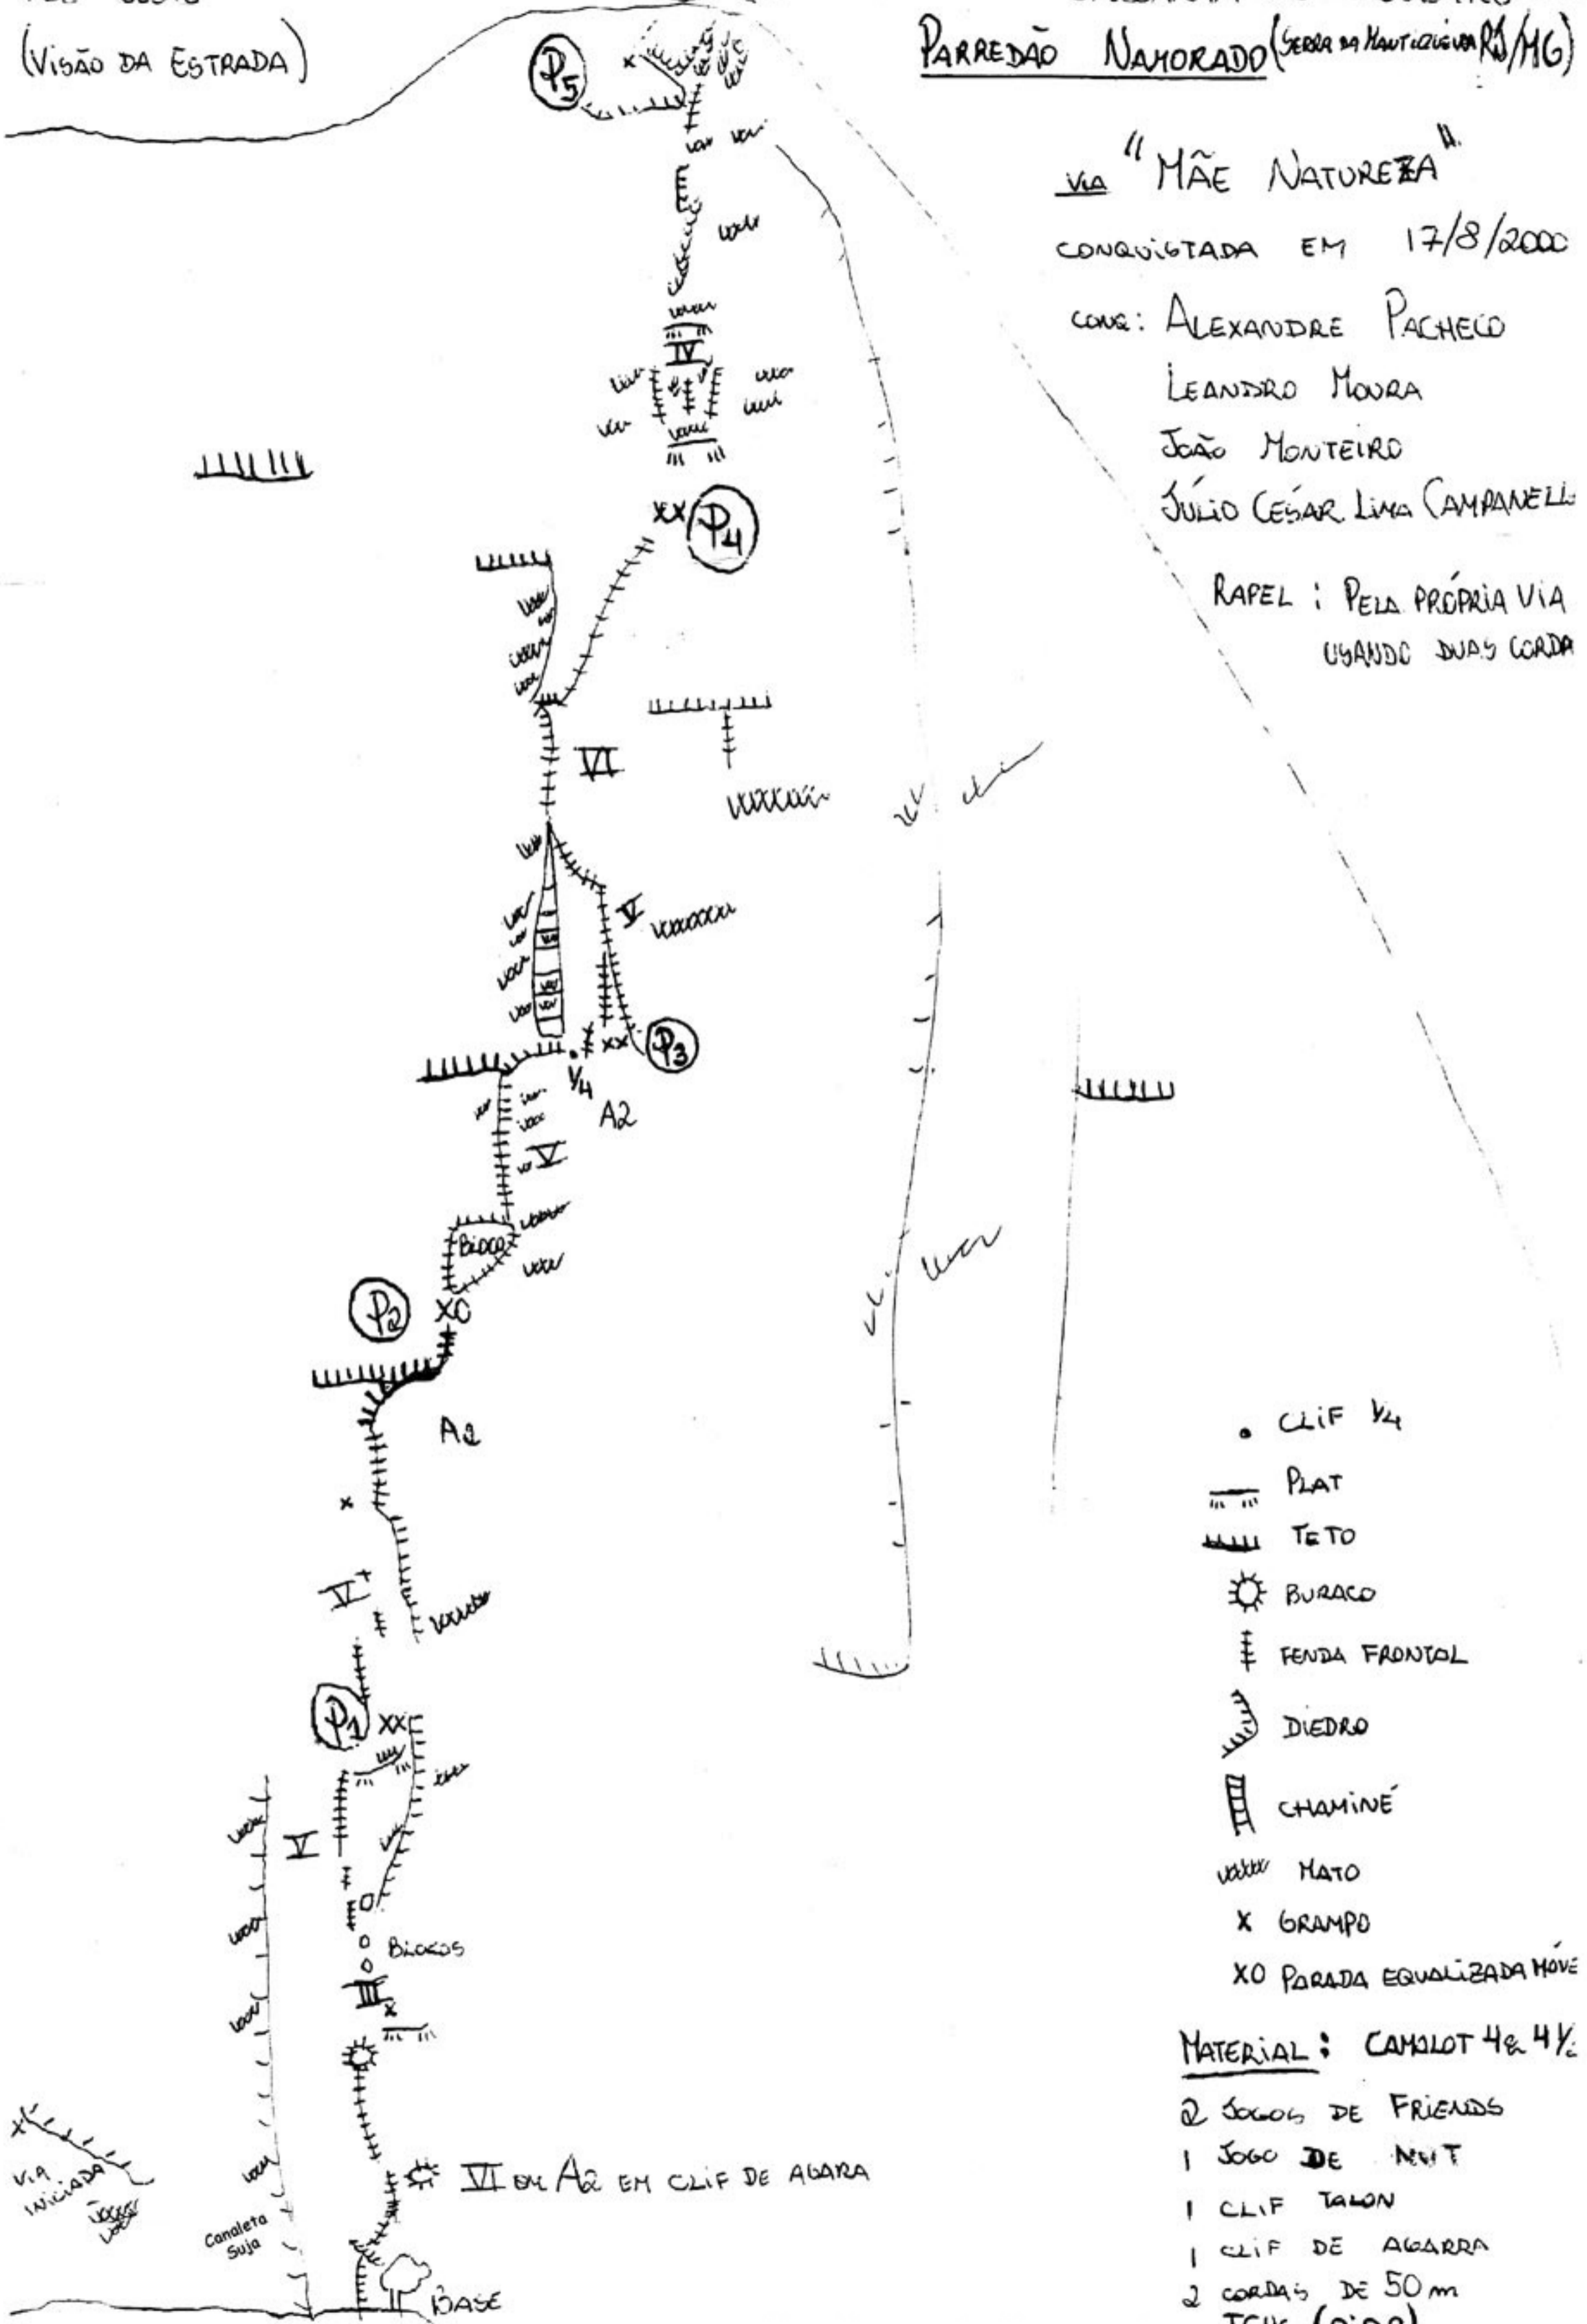 (VISÃO DA ESTRADA)
PARREDÃO NAMORADO (SERRA DA MANTIQUEIRA RJ/MG)
VIA "MÃE NATUREZA"
CONQUISTADA EM 17/8/2000
CONQ: ALEXANDRE PACHECO
LEANDRO MOURA
JOÃO MONTEIRO
JÚLIO CÉSAR LIMA CAMPANELL
RAPEL: PELA PRÓPRIA VIA
USANDO DUAS CORDA
P5
IV
XX P4
VI
V
XX P3
1/4
A2
V
BLOCO
P2 XO
A2
X
V+
P1 XX
V
BLOCOS
III
X
VI OU A2 EM CLIF DE AGARA
X
VIA
INICIADA
Canaleta
Suja
BASE
CLIF 1/4
PLAT
TETO
BURACO
FENDA FRONTAL
DIEDRO
CHAMINÉ
MATO
X GRAMPO
XO PARADA EQUALIZADA MÓVE
MATERIAL: CAMALOT 4 & 4 1/2
2 JOGOS DE FRIENDS
1 JOGO DE NUT
1 CLIF TALON
1 CLIF DE AGARRA
2 CORDAS DE 50 m